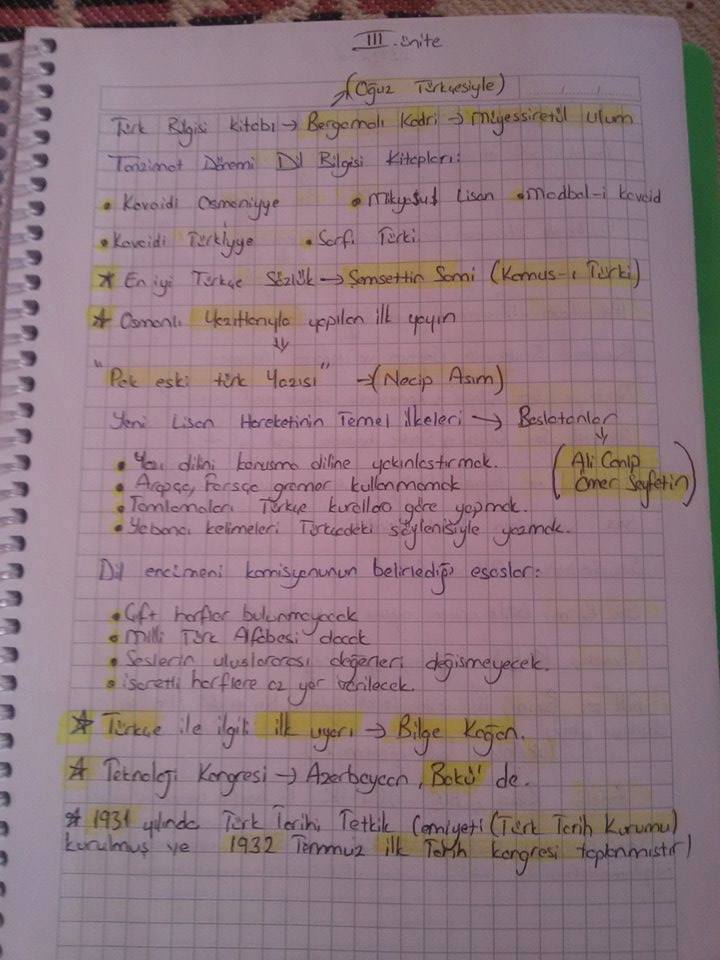 III. ünite
(Oğuz Türkçesiyle)
Türk Bilgisi kitabı → Bergamalı Kadri → Müyessiretül ulum
Tanzimat Dönemi Dil Bilgisi Kitapları:
• Kavaidi Osmaniyye • Mikyasul Lisan • Medhal-i kavaid
• Kavaidi Türkiyye • Sarfı Türki
* En iyi Türkçe Sözlük → Şemsettin Sami (Kamus-ı Türki)
* Osmanlı Yazıtlarıyla yapılan ilk yayın
↓
"Pek eski türk Yazısı" → (Necip Asım)
Yeni Lisan Hareketinin Temel ilkeleri → Başlatanlar
↓
• Yazı dilini konuşma diline yakınlaştırmak. (Ali Canip
• Arapça, Farsça gramer kullanmamak Ömer Seyfetin)
• Tamlamaları Türkçe kurallara göre yapmak.
• Yabancı kelimeleri Türkçedeki söylenişiyle yazmak.
Dil encümeni komisyonunun belirlediği esaslar:
• Çift harfler bulunmayacak
• Milli Türk Alfabesi olacak
• Seslerin uluslararası değerleri değişmeyecek.
• işaretli harflere az yer verilecek.
* Türkçe ile ilgili ilk uyarı → Bilge Kağan.
* Teknoloji Kongresi → Azerbaycan, Bakü' de.
* 1931 yılında Türk Tarihi Tetkik Cemiyeti (Türk Tarih Kurumu)
kurulmuş ve 1932 Temmuz ilk Tarih kongresi toplanmıştır)